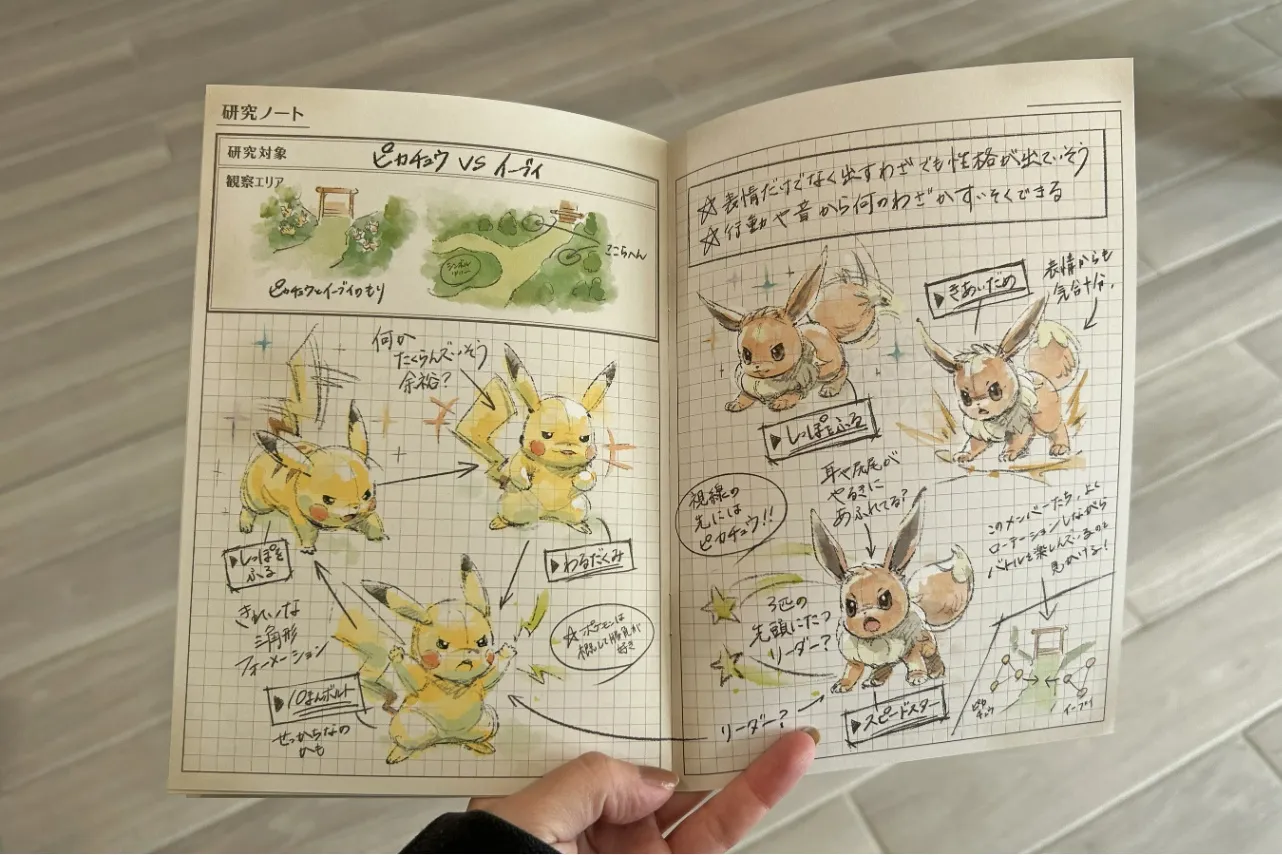 研究ノート
研究対象
ピカチュウ VS イーブイ
観察エリア
シンボル
ツリー
ここらへん
ピカチュウとイーブイのもり
何か
たくらんでいそう
余裕?
▶しっぽを
ふる
▶わるだくみ
きれいな
三角形
フォーメーション
☆ポケモンは
概して勝負が
好き
▶10まんボルト
せっかちなの
かも
☆表情だけでなく出すわざでも性格が出ていそう
☆行動や音から何のわざかすいそくできる
▶きあいだめ
表情からも
気合十分。
▶しっぽをふる
視線の
先には
ピカチュウ!!
耳や尻尾が
やるきに
あふれてる?
このメンバーたち、よく
ローテーションしながら
バトルを楽しんでいるのを
見かける!
3匹の
先頭にたつ
リーダー?
リーダー?
▶スピードスター
ピカ
チュウ
イーブイ